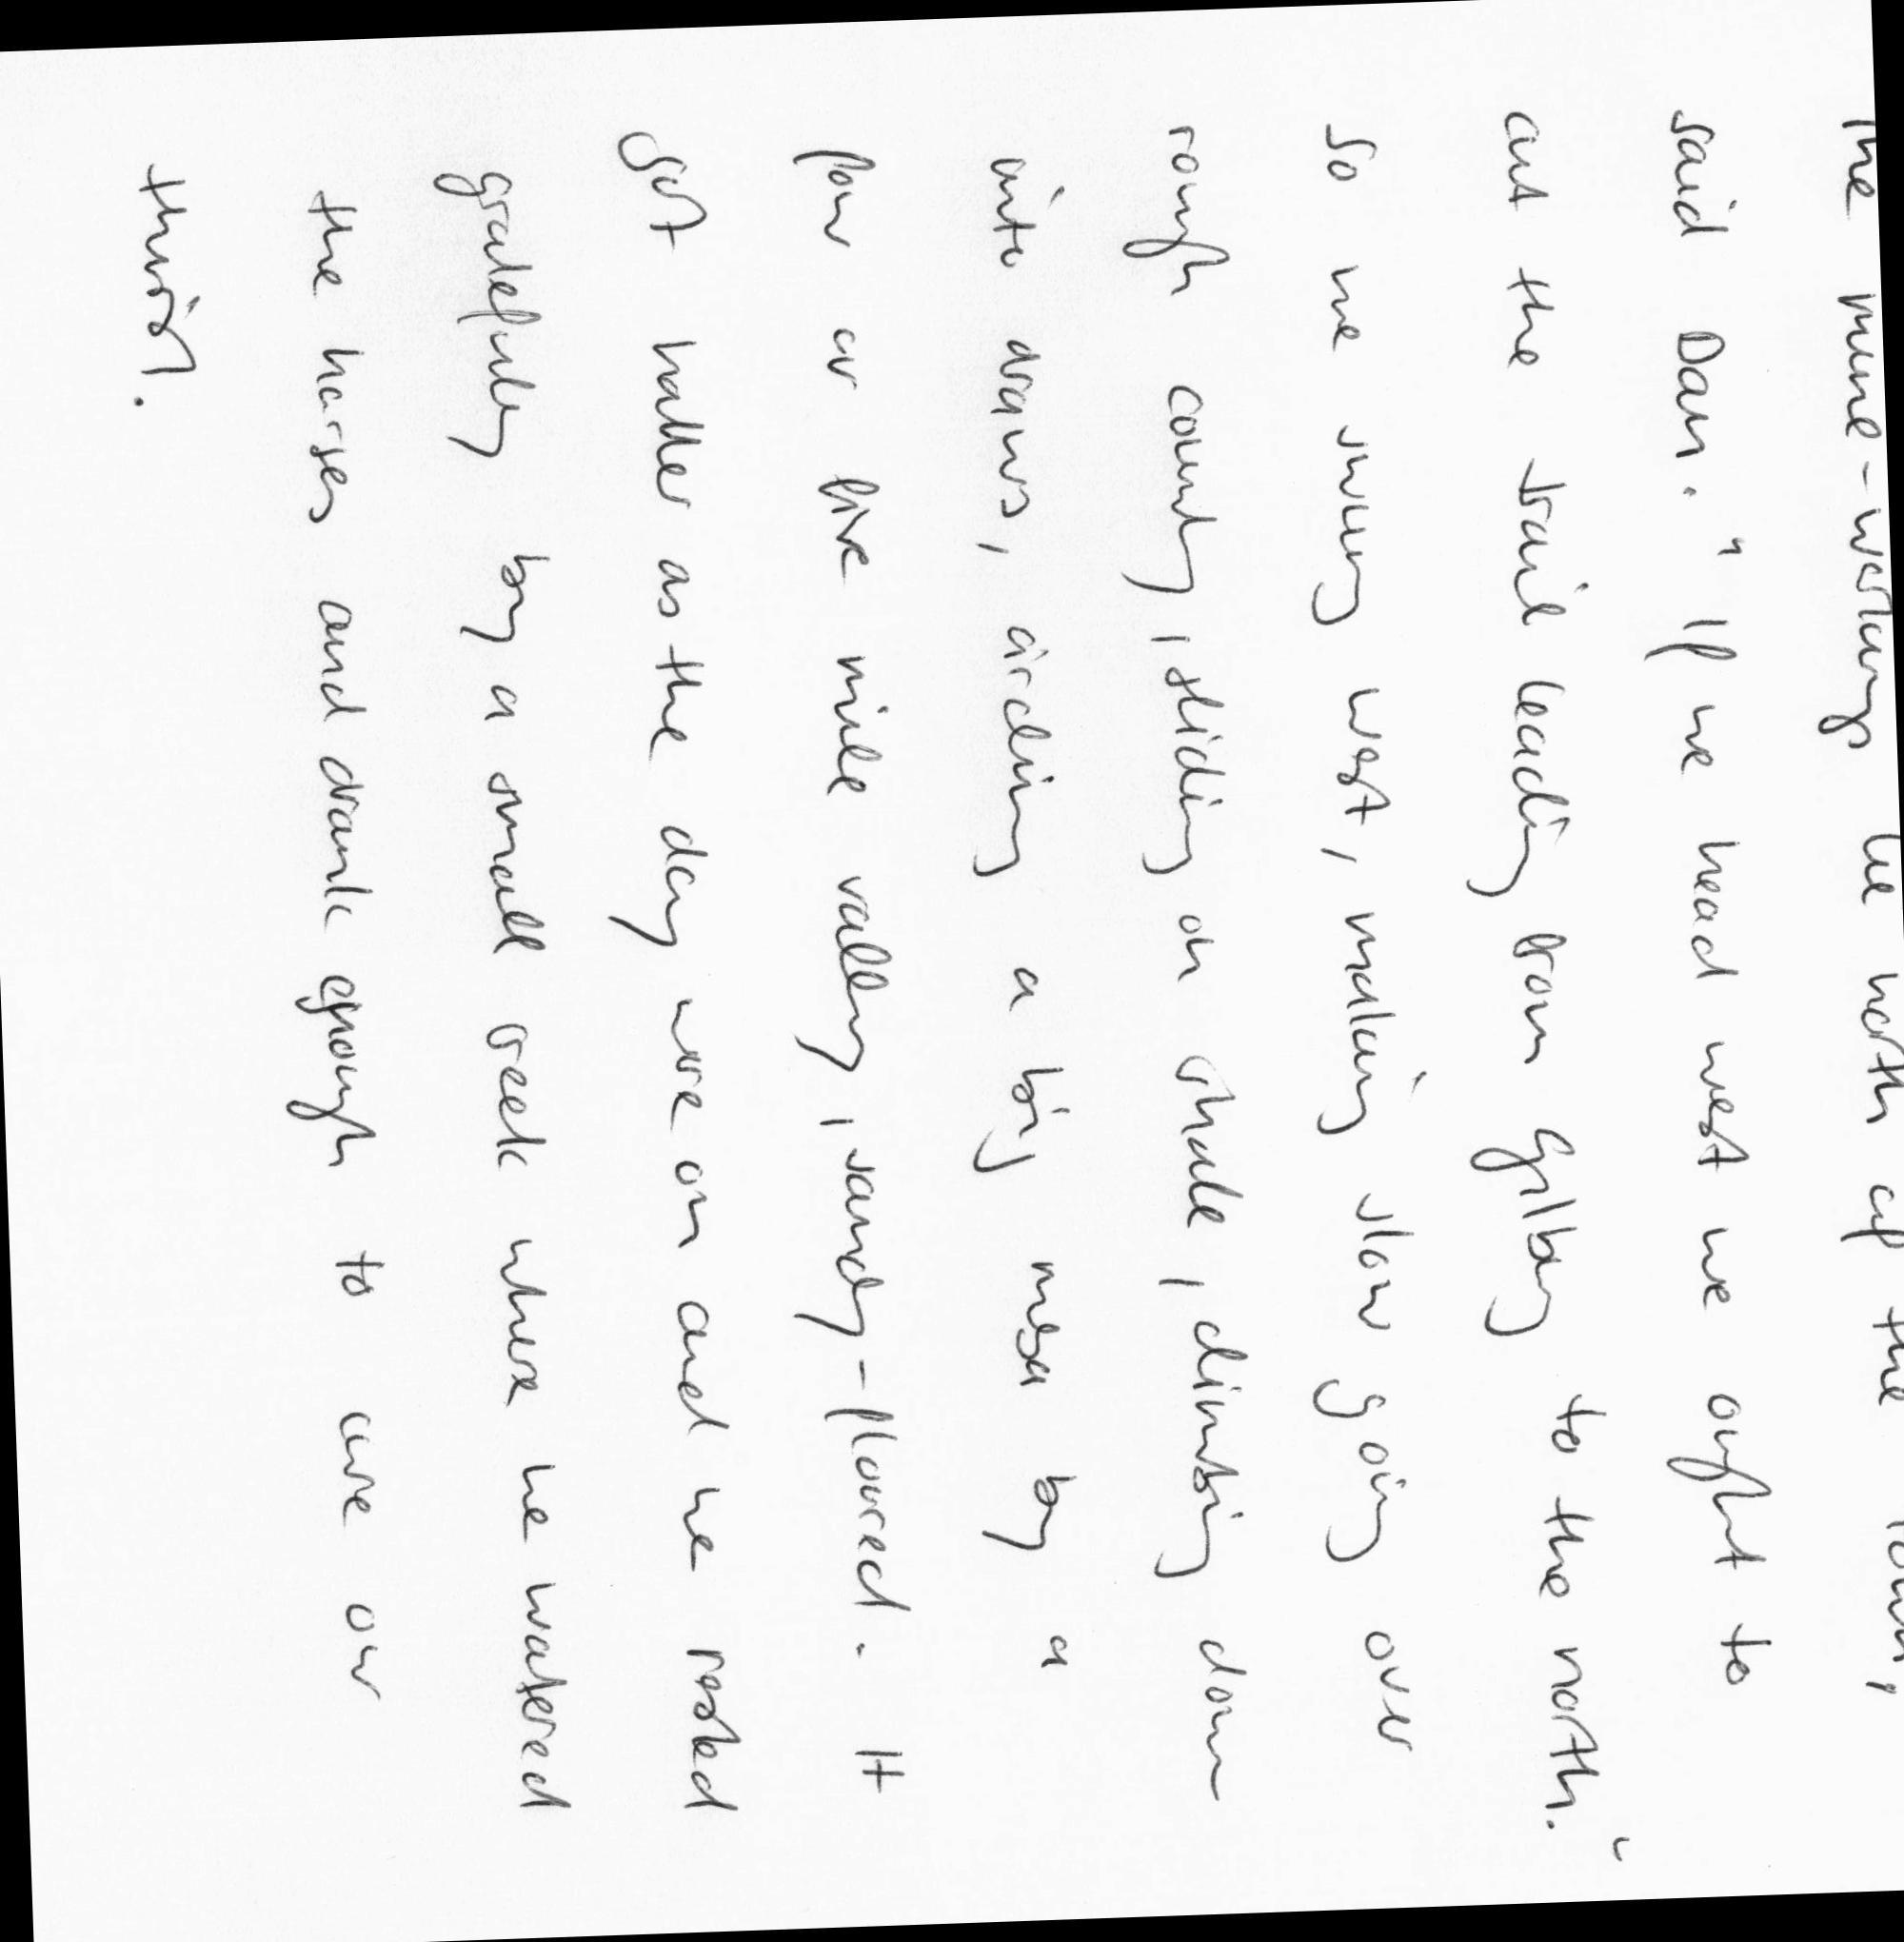 the mine-workings lie north of the town,
said Dan. "If we head west we ought to
cut the trail leading from Gilbey to the north."
So we swung west, making slow going over
rough county, sliding on shale, climbing down
into draws, circling a big mesa by a
four or five mile valley, sandy-floored. It
got hotter as the day wore on and we rested
gratefully by a small creek where we watered
the horses and drank enough to cure our
thirst.